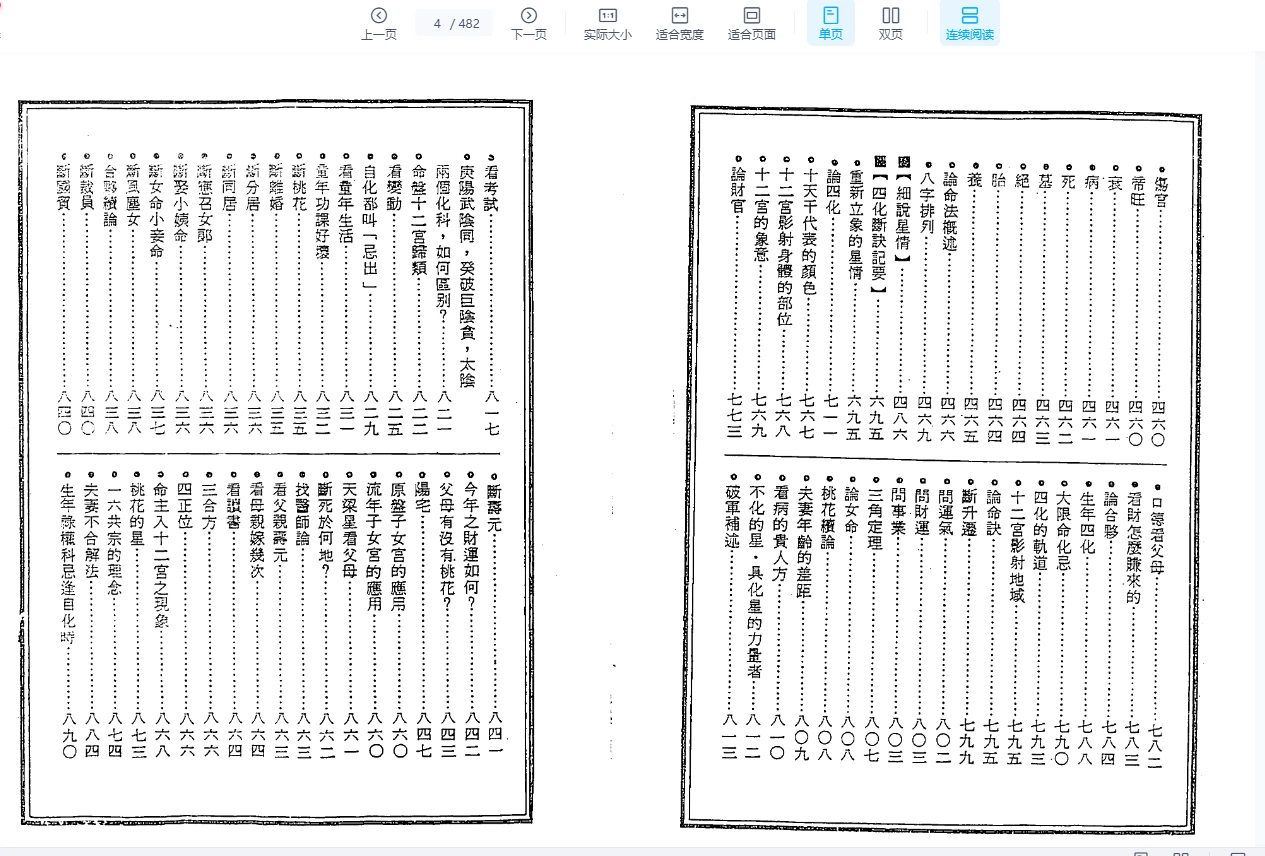 上一页
4 / 482
下一页
1:1
实际大小
适合宽度
适合页面
单页
双页
连续阅读
傷官⋯⋯四六〇
帝旺⋯⋯四六〇
衰⋯⋯四六一
病⋯⋯四六一
死⋯⋯四六二
墓⋯⋯四六三
絕⋯⋯四六四
胎⋯⋯四六四
養⋯⋯四六五
論命法概述⋯⋯四六六
八字排列⋯⋯四六九
【細說星情】⋯⋯四八六
【四化斷訣記要】⋯⋯六九五
重新立象的星情⋯⋯六九五
論四化⋯⋯七一一
十天干代表的顏色⋯⋯七六七
十二宮影射身體的部位⋯⋯七六八
十二宮的象意⋯⋯七六九
論財官⋯⋯七七三
口德看父母⋯⋯七八二
看財怎麼賺來的⋯⋯七八三
論合夥⋯⋯七八四
生年四化⋯⋯七八八
大限命化忌⋯⋯七九〇
四化的軌道⋯⋯七九三
十二宮影射地域⋯⋯七九五
論命訣⋯⋯七九五
斷升遷⋯⋯七九九
問運氣⋯⋯八〇二
問財運⋯⋯八〇三
問事業⋯⋯八〇三
三角定理⋯⋯八〇七
論女命⋯⋯八〇八
桃花續論⋯⋯八〇八
夫妻年齡的差距⋯⋯八〇九
看病的貴人方⋯⋯八一〇
不化的星・具化星的力量者⋯⋯八一二
破軍補述⋯⋯八一三
看考試⋯⋯八一七
庚陽武陰同，癸破巨陰貪，太陰
兩個化科，如何區別？⋯⋯八二一
命盤十二宮歸類⋯⋯八二二
看變動⋯⋯八二五
自化都叫「忌出」⋯⋯八二九
看童年生活⋯⋯八三一
童年功課好壞⋯⋯八三二
斷桃花⋯⋯八三五
斷離婚⋯⋯八三五
斷分居⋯⋯八三六
斷同居⋯⋯八三六
斷應召女郎⋯⋯八三六
斷娶小姨命⋯⋯八三六
斷女命小妾命⋯⋯八三七
斷風塵女⋯⋯八三八
合夥續論⋯⋯八三八
斷教員⋯⋯八四〇
斷窮貧⋯⋯八四〇
斷壽元⋯⋯八四一
今年之財運如何？⋯⋯八四二
父母有沒有桃花？⋯⋯八四三
陽宅⋯⋯八四七
原盤子女宮的應用⋯⋯八六〇
流年子女宮的應用⋯⋯八六〇
天梁星看父母⋯⋯八六一
斷死於何地？⋯⋯八六二
找醫師論⋯⋯八六三
看父親壽元⋯⋯八六三
看母親嫁幾次⋯⋯八六四
看讀書⋯⋯八六四
三合方⋯⋯八六六
四正位⋯⋯八六六
命主入十二宮之現象⋯⋯八六八
桃花的星⋯⋯八七三
一六共宗的理念⋯⋯八七四
夫妻不合解法⋯⋯八八四
生年祿權科忌逢自化時⋯⋯八九〇